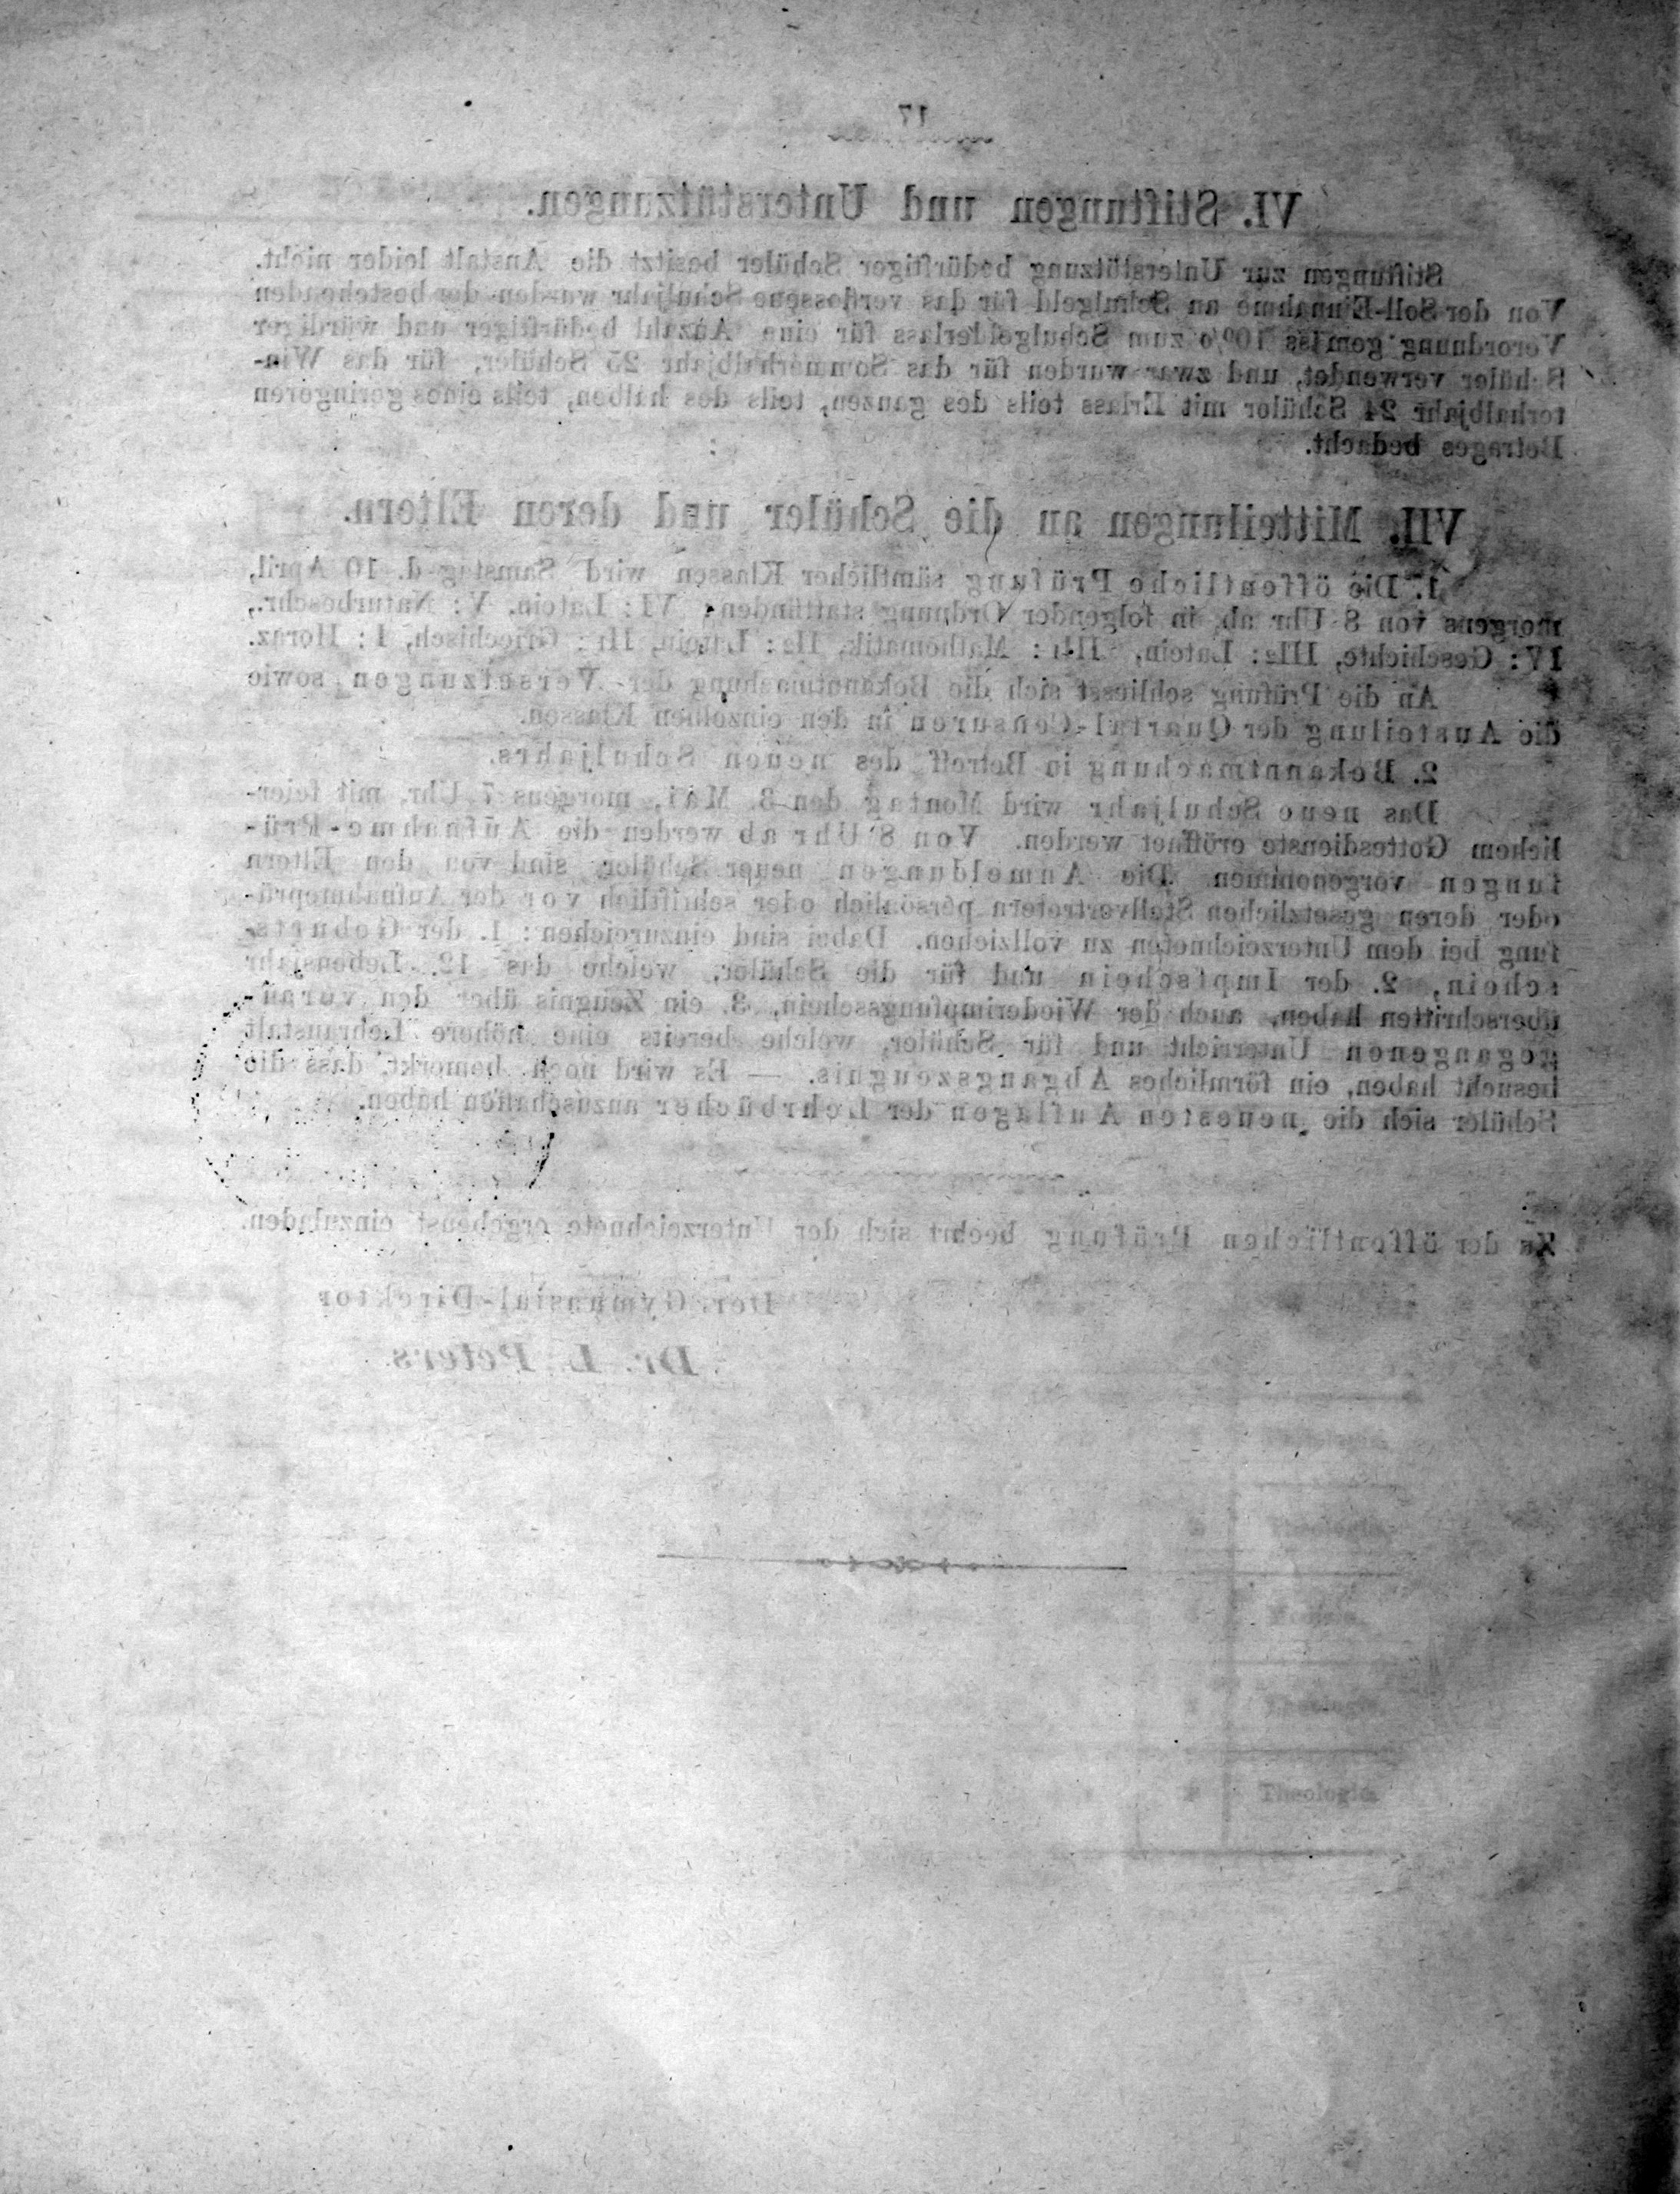 17
VI. Stiftungen und Unterstützungen.
Stiftungen zur Unterstützung bedürftiger Schüler besitzt die Anstalt leider nicht.
Von der Soll-Einnahme an Schulgeld für das verflossene Schuljahr wurden der bestehenden
Verordnung gemäss 10% zum Schulgelderlass für eine Anzahl bedürftiger und würdiger
Schüler verwendet, und zwar wurden für das Sommerhalbjahr 25 Schüler, für das Win-
terhalbjahr 24 Schüler mit Erlass teils des ganzen, teils des halben, teils eines geringeren
Betrages bedacht.
VII. Mitteilungen an die Schüler und deren Eltern.
1. Die öffentliche Prüfung sämtlicher Klassen wird Samstag d. 10 April,
morgens von 8 Uhr ab, in folgender Ordnung stattfinden: VI: Latein. V: Naturbeschr.,
IV: Geschichte, III2: Latein, III1: Mathematik, II2: Latein, II1: Griechisch, I: Horaz.
An die Prüfung schliesst sich die Bekanntmachung der Versetzungen sowie
die Austeilung der Quartal-Censuren in den einzelnen Klassen.
2. Bekanntmachung in Betreff des neuen Schuljahrs.
Das neue Schuljahr wird Montag den 3. Mai, morgens 7 Uhr, mit feier-
lichem Gottesdienste eröffnet werden. Von 8 Uhr ab werden die Aufnahme-Prü-
fungen vorgenommen. Die Anmeldungen neuer Schüler sind von den Eltern
oder deren gesetzlichen Stellvertretern persönlich oder schriftlich vor der Aufnahmeprü-
fung bei dem Unterzeichneten zu vollziehen. Dabei sind einzureichen: 1. der Geburts-
schein, 2. der Impfschein und für die Schüler, welche das 12. Lebensjahr
überschritten haben, auch der Wiederimpfungsschein, 3. ein Zeugnis über den voran-
gegangenen Unterricht und für Schüler, welche bereits eine höhere Lehranstalt
besucht haben, ein förmliches Abgangszeugnis. — Es wird noch bemerkt, dass die
Schüler sich die neuesten Auflagen der Lehrbücher anzuschaffen haben.
Zu der öffentlichen Prüfung beehrt sich der Unterzeichnete ergebenst einzuladen.
Der Gymnasial-Direktor
Dr. L. Peters.
Theologie
Theologie
Theologie